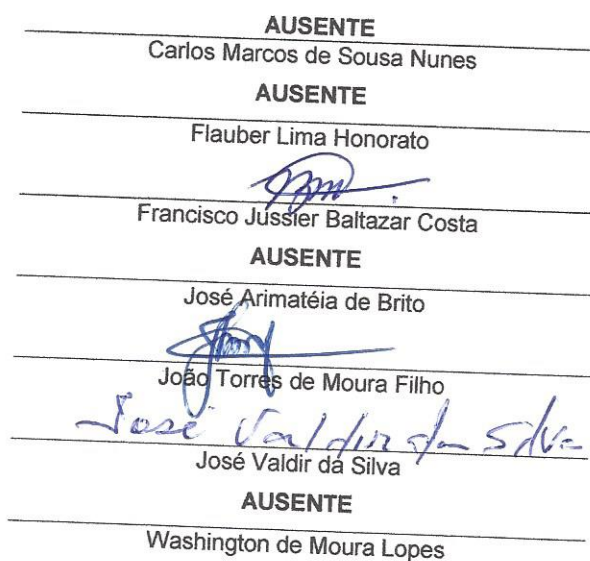 AUSENTE
Carlos Marcos de Sousa Nunes
AUSENTE
Flauber Lima Honorato
Francisco Jussier Baltazar Costa
AUSENTE
José Arimatéia de Brito
João Torres de Moura Filho
José Valdir da Silva
José Valdir da Silva
AUSENTE
Washington de Moura Lopes